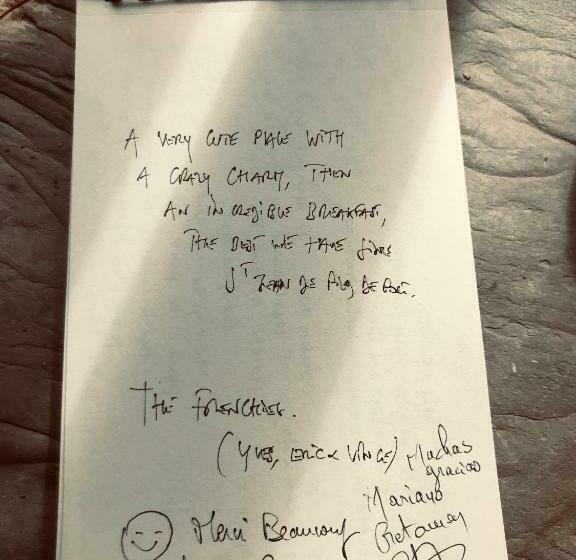 A VERY CUTE PLACE WITH
A CRAZY CHARM, THEN
AN INCREDIBLE BREAKFAST,
THE BEST WE HAVE SINCE
S^T JEAN DE PIED DE PORT.
THE FRENCHIES.
(YVES, ERIC & VINCE) Muchas
gracias
Mariano
Merci